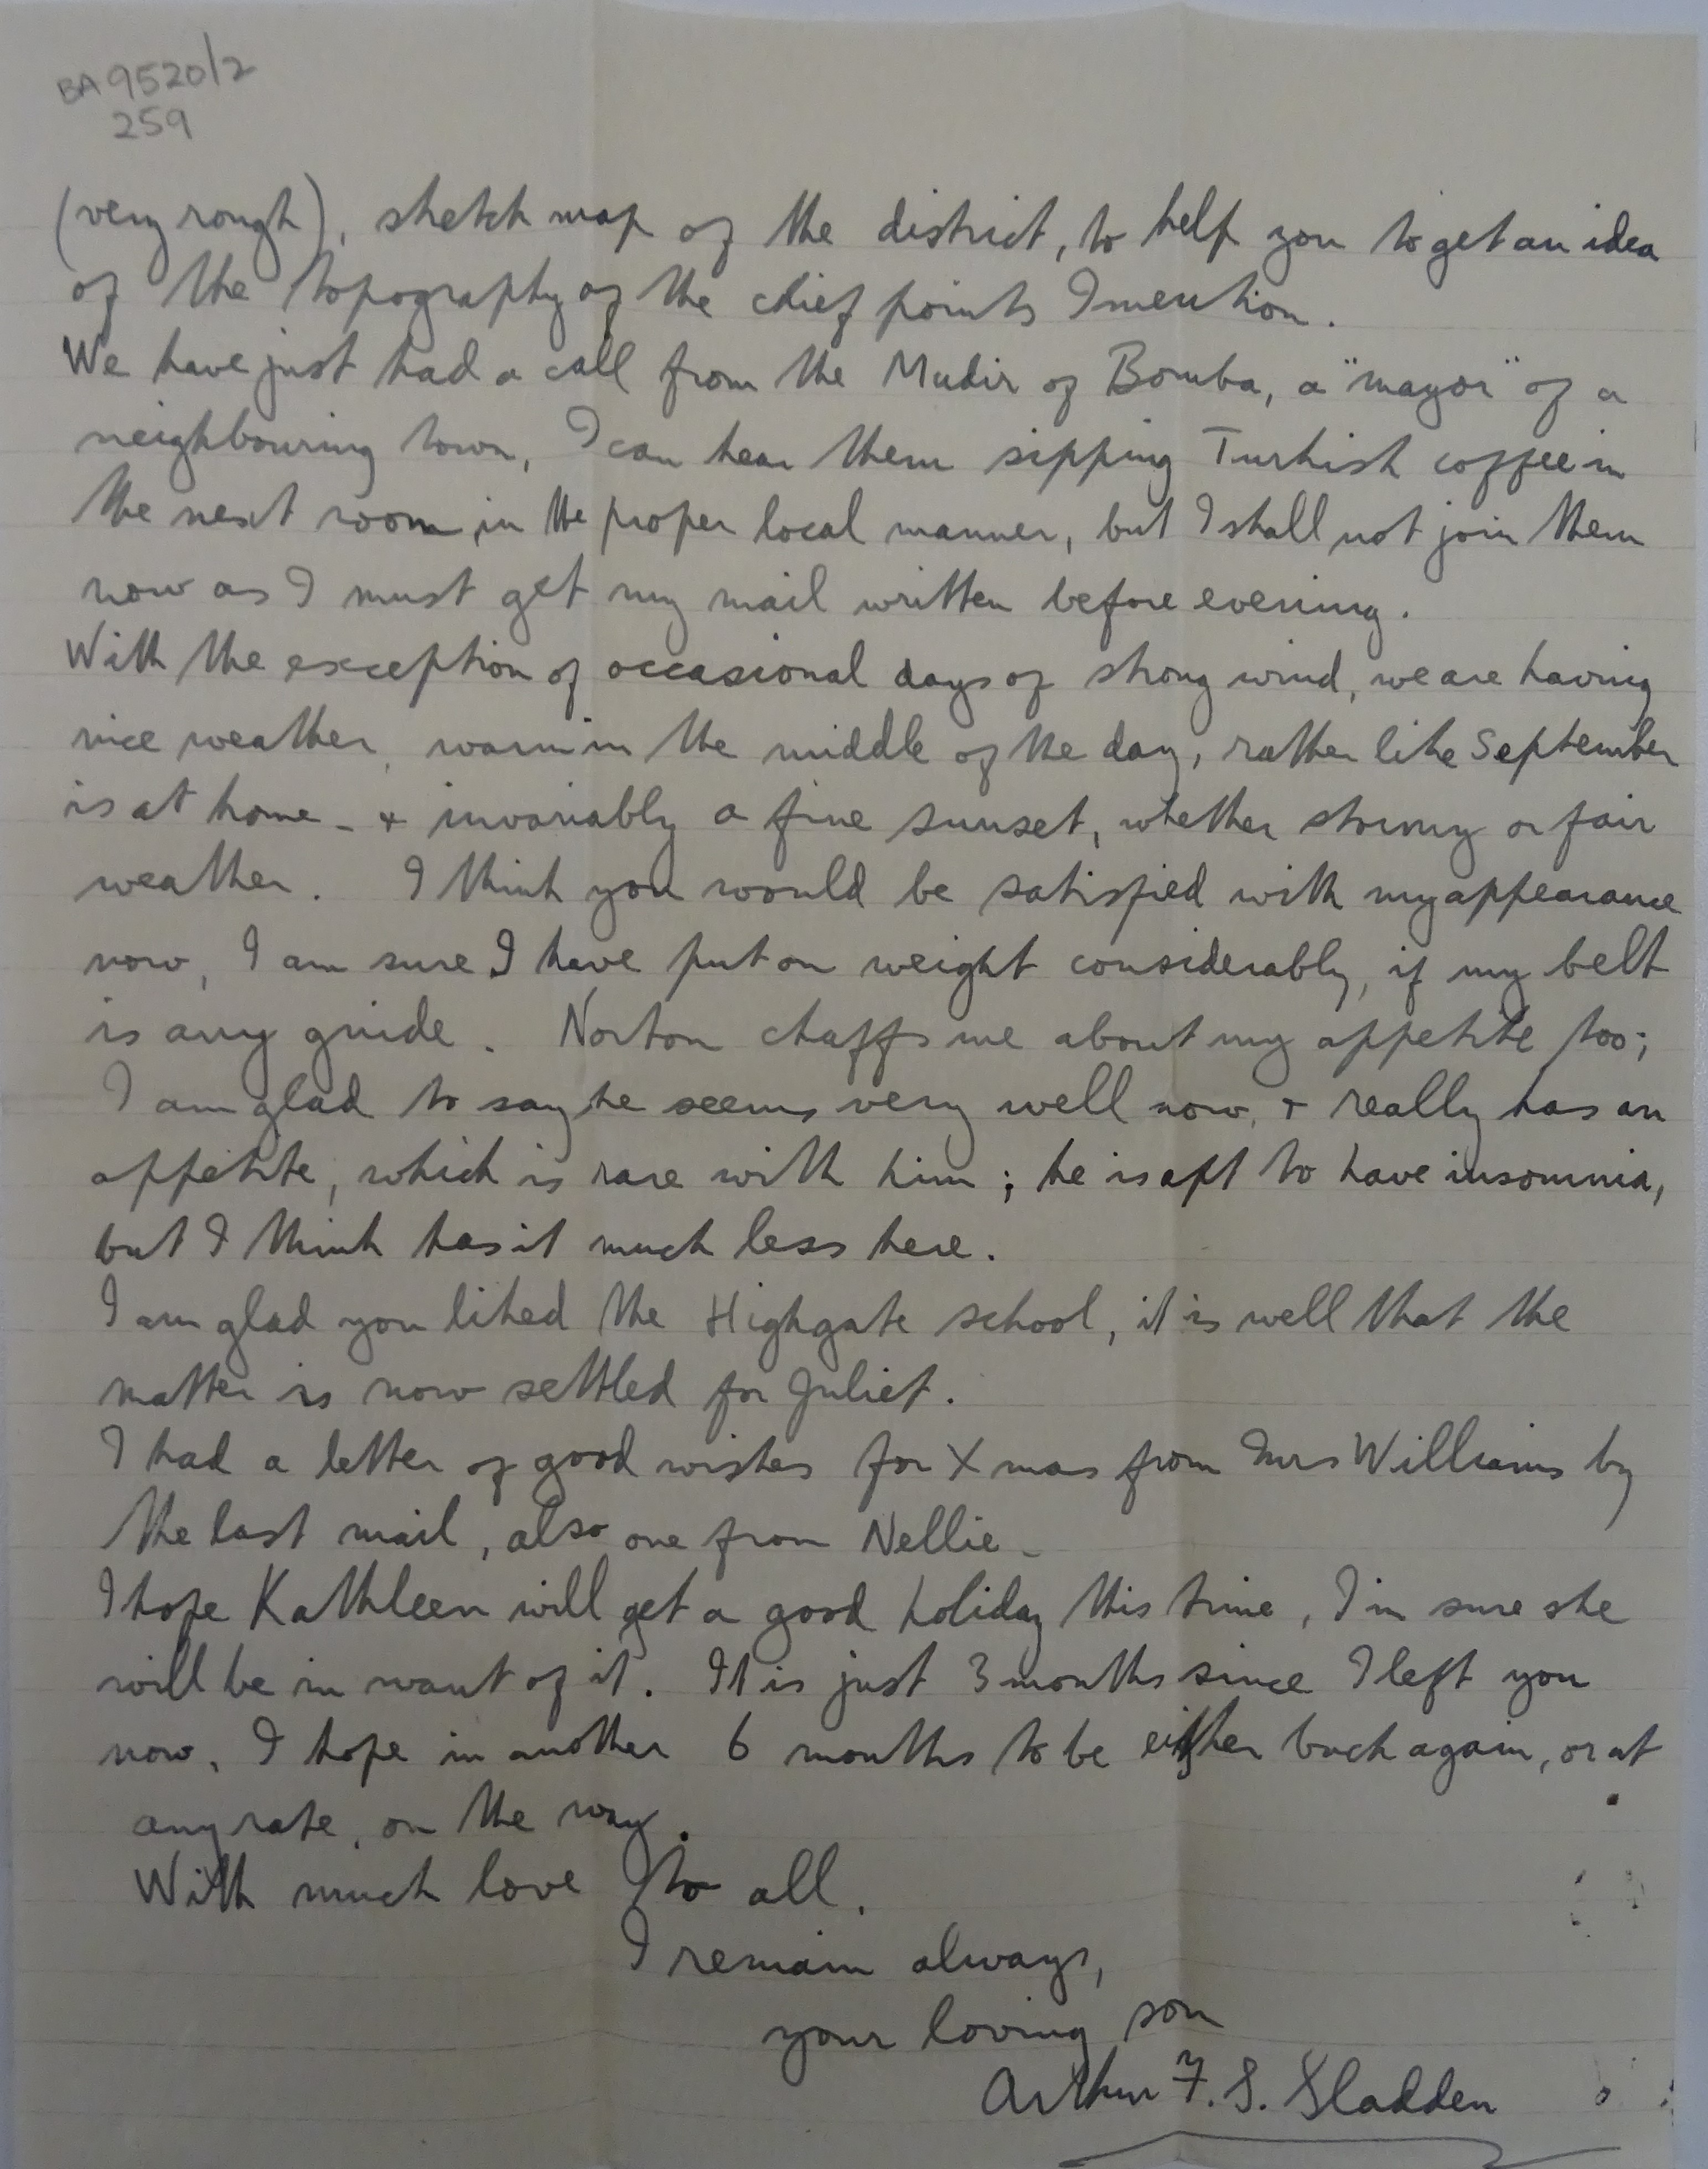 BA 9520/2
259
(very rough), sketch map of the district, to help you to get an idea
of the topography of the chief points I mention.
We have just had a call from the Mudir of Bomba, a "mayor" of a
neighbouring town, I can hear them sipping Turkish coffee in
the next room in the proper local manner, but I shall not join them
now as I must get my mail written before evening.
With the exception of occasional days of strong wind, we are having
nice weather, warm in the middle of the day, rather like September
is at home - & invariably a fine sunset, whether stormy or fair
weather. I think you would be satisfied with my appearance
now, I am sure I have put on weight considerably, if my belt
is any guide. Norton chaffs me about my appetite too;
I am glad to say he seems very well now, & really has an
appetite, which is rare with him; he is apt to have insomnia,
but I think has it much less here.
I am glad you liked the Highgate school, it is well that the
matter is now settled for Juliet.
I had a letter of good wishes for Xmas from Mrs Williams by
the last mail, also one from Nellie.
I hope Kathleen will get a good holiday this time, I'm sure she
will be in want of it. It is just 3 months since I left you
now, I hope in another 6 months to be either back again, or at
any rate, on the way.
With much love to all,
I remain always,
your loving son
Arthur F. S. Sladden